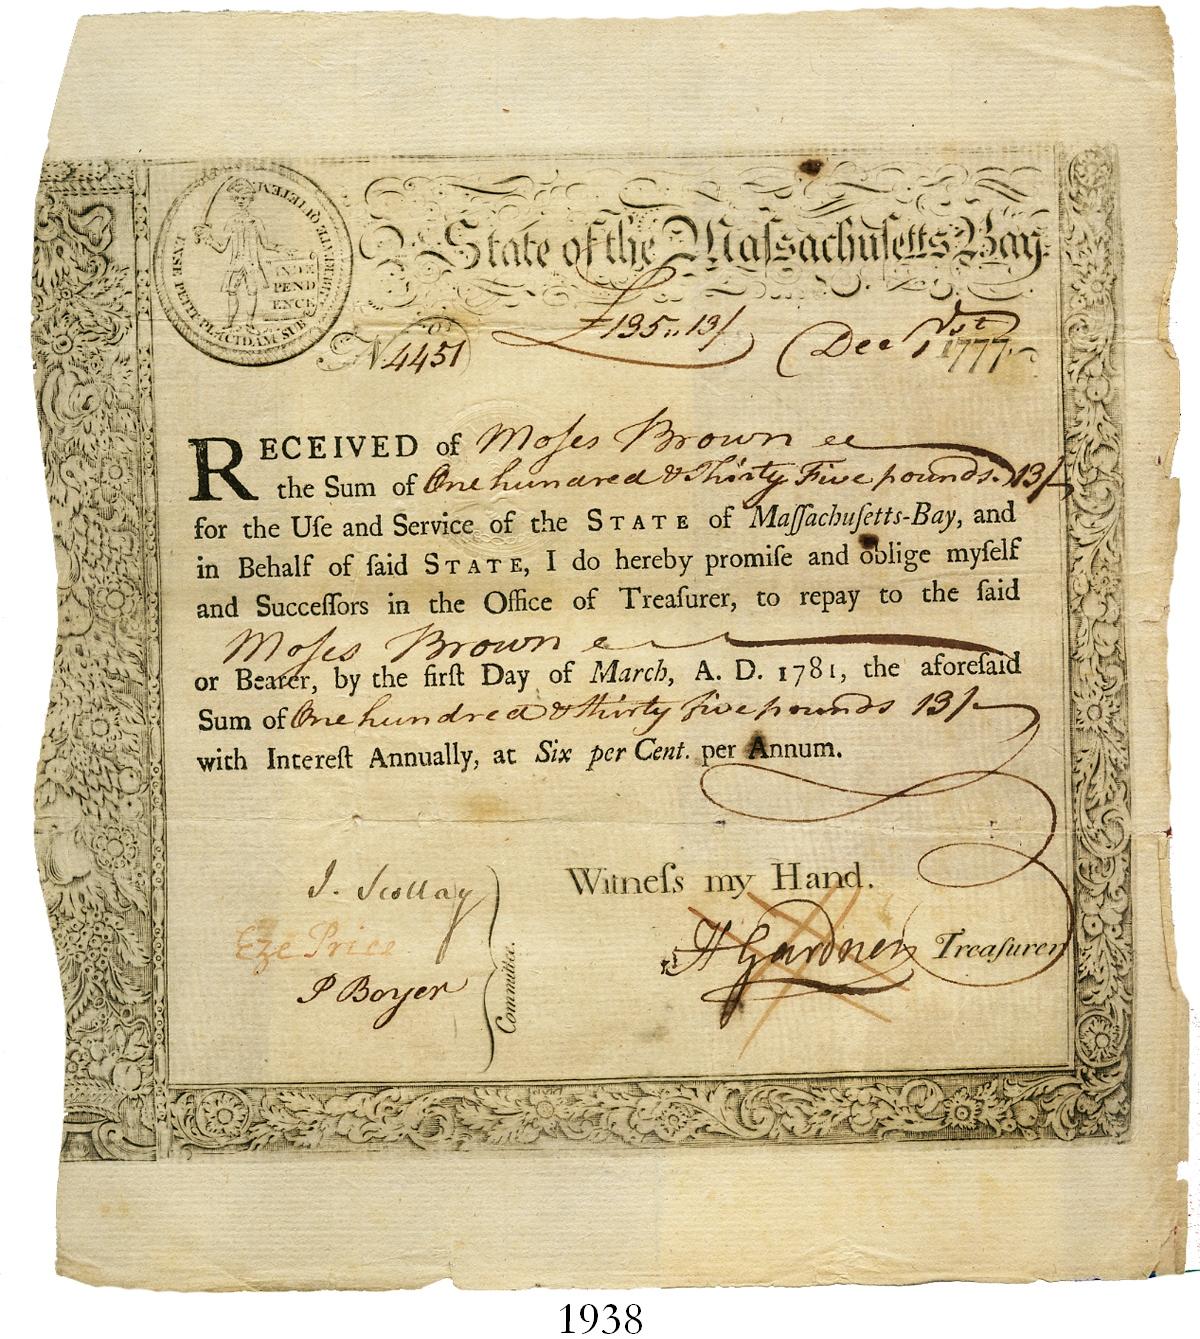 ENSE PETIT PLACIDAM SUB LIBERTATE QUIETEM
INDE
PEND
ENCE
State of the Maſsachuſetts Bay.
£135,, 13/
No. 4451
Decr. 1st 1777.
RECEIVED of Moſes Brown
the Sum of One hundred & Thirty Five pounds. 13/
for the Uſe and Service of the STATE of Maſſachuſetts-Bay, and
in Behalf of ſaid STATE, I do hereby promiſe and oblige myſelf
and Succeſſors in the Office of Treaſurer, to repay to the ſaid
Moſes Brown
or Bearer, by the firſt Day of March, A. D. 1781, the aforeſaid
Sum of One hundred & thirty five pounds 13/
with Intereſt Annually, at Six per Cent. per Annum.
Witneſs my Hand.
J. Scollay
Eze Price
P Boyer
Committee.
H Gardner Treaſurer
1938